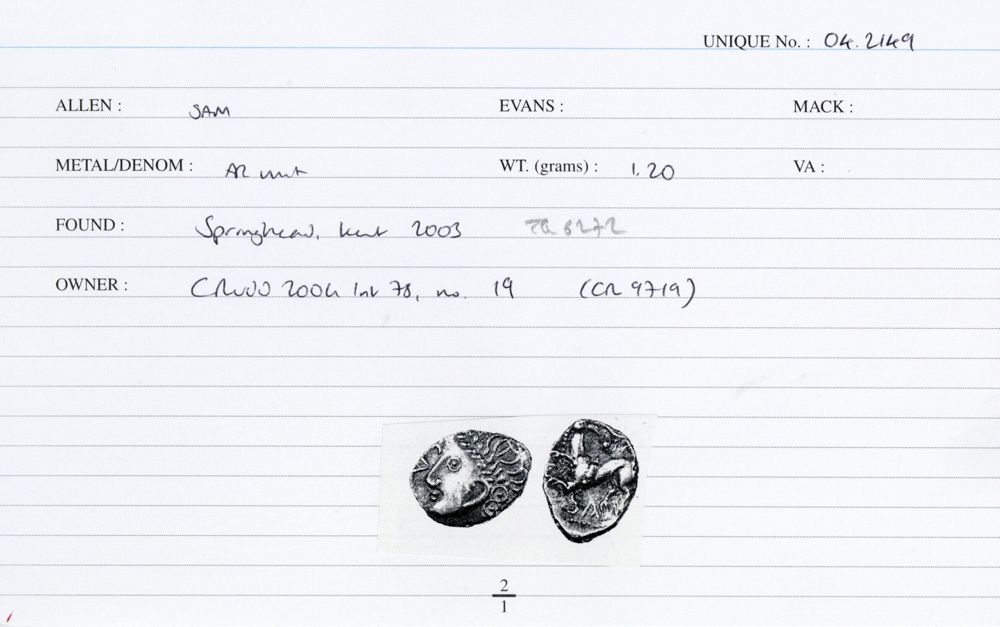 UNIQUE No. : 04.2149
ALLEN : SAM EVANS : MACK :
METAL/DENOM : AR unit WT. (grams) : 1.20 VA :
FOUND : Springhead, Kent 2003 TQ 6272
OWNER : CRUDD 2004 Inv 78, no. 19 (CR 9719)
2
1